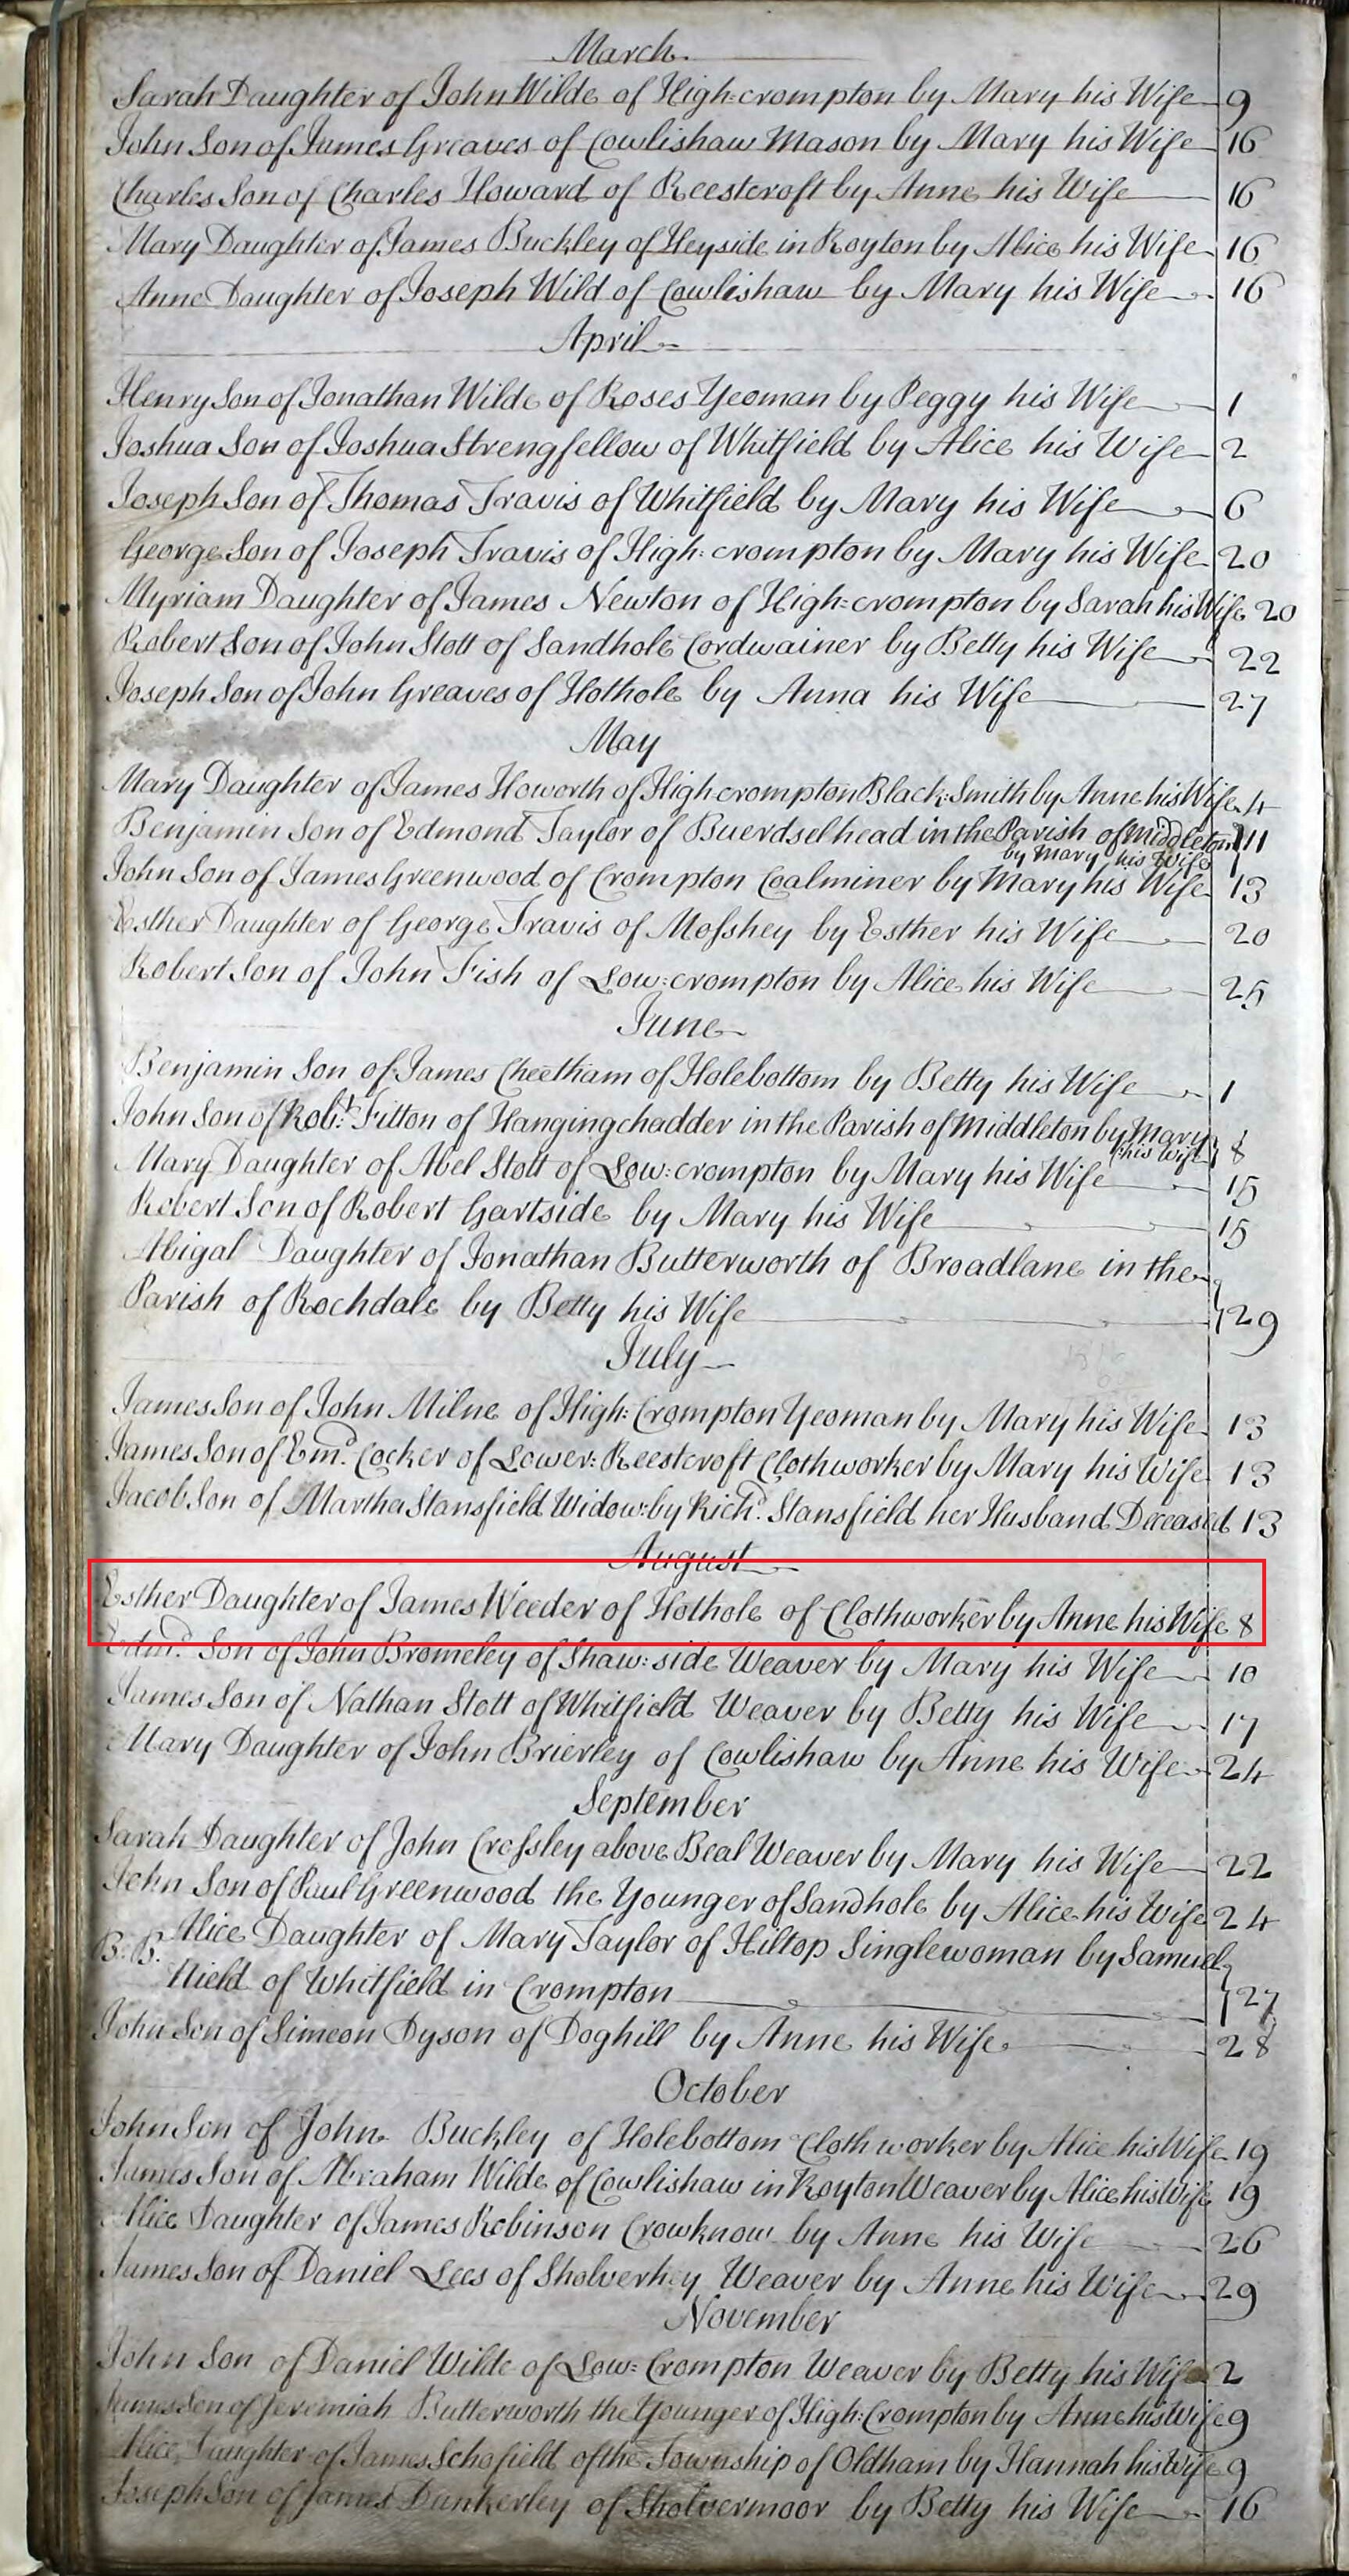 March.
Sarah Daughter of John Wilde of High=crompton by Mary his Wife 9
John Son of James Greaves of Cowlishaw Mason by Mary his Wife 16
Charles Son of Charles Howard of Reestcroft by Anne his Wife 16
Mary Daughter of James Buckley of Heyside in Royton by Alice his Wife 16
Anne Daughter of Joseph Wild of Cowlishaw by Mary his Wife 16
April
Henry Son of Jonathan Wilde of Roses Yeoman by Peggy his Wife 1
Joshua Son of Joshua Strengfellow of Whitfield by Alice his Wife 2
Joseph Son of Thomas Travis of Whitfield by Mary his Wife 6
George Son of Joseph Travis of High: crompton by Mary his Wife 20
Myriam Daughter of James Newton of High=crompton by Sarah his Wife 20
Robert Son of John Stott of Sandhole Cordwainer by Betty his Wife 22
Joseph Son of John Greaves of Hothole by Anna his Wife 27
May
Mary Daughter of James Howorth of High crompton Black:Smith by Anne his Wife 4
Benjamin Son of Edmond Taylor of Buerdselhead in the Parish of Middleton 11
by Mary his Wife
John Son of James Greenwood of Crompton Coalminer by Mary his Wife 13
Esther Daughter of George Travis of Mosshey by Esther his Wife 20
Robert Son of John Fish of Low:crompton by Alice his Wife 25
June
Benjamin Son of James Cheetham of Holebottom by Betty his Wife 1
John Son of Robt. Fitton of Hangingchadder in the Parish of Middleton by Mary 8
his Wife
Mary Daughter of Abel Stott of Low:crompton by Mary his Wife 15
Robert Son of Robert Gartside by Mary his Wife 15
Abigal Daughter of Jonathan Butterworth of Broadlane in the
Parish of Rochdale by Betty his Wife 29
July
James Son of John Milne of High:Crompton Yeoman by Mary his Wife 13
James Son of Emd. Cocker of Lower:Reestcroft Clothworker by Mary his Wife 13
Jacob Son of Martha Stansfield Widow:by Richd. Stansfield her Husband Deceased 13
August
Esther Daughter of James Weeder of Hothole of Clothworker by Anne his Wife 8
Edmd. Son of John Bromeley of Shaw:side Weaver by Mary his Wife 10
James Son of Nathan Stott of Whitfield Weaver by Betty his Wife 17
Mary Daughter of John Brierley of Cowlishaw by Anne his Wife 24
September
Sarah Daughter of John Crossley above Beal Weaver by Mary his Wife 22
John Son of Paul Greenwood the Younger of Sandhole by Alice his Wife 24
B:B. Alice Daughter of Mary Taylor of Hiltop Singlewoman by Samuel
Nield of Whitfield in Crompton 27
John Son of Simeon Dyson of Doghill by Anne his Wife 28
October
John Son of John Buckley of Holebottom Clothworker by Alice his Wife 19
James Son of Abraham Wilde of Cowlishaw in Royton Weaver by Alice his Wife 19
Alice Daughter of James Robinson Crowknow by Anne his Wife 26
James Son of Daniel Lees of Sholverhey Weaver by Anne his Wife 29
November
John Son of Daniel Wilde of Low:Crompton Weaver by Betty his Wife 2
James Son of Jeremiah Butterworth the Younger of High:Crompton by Anne his Wife 9
Alice Daughter of James Schofield of the Township of Oldham by Hannah his Wife 9
Joseph Son of James Dunkerley of Sholvermoor by Betty his Wife 16